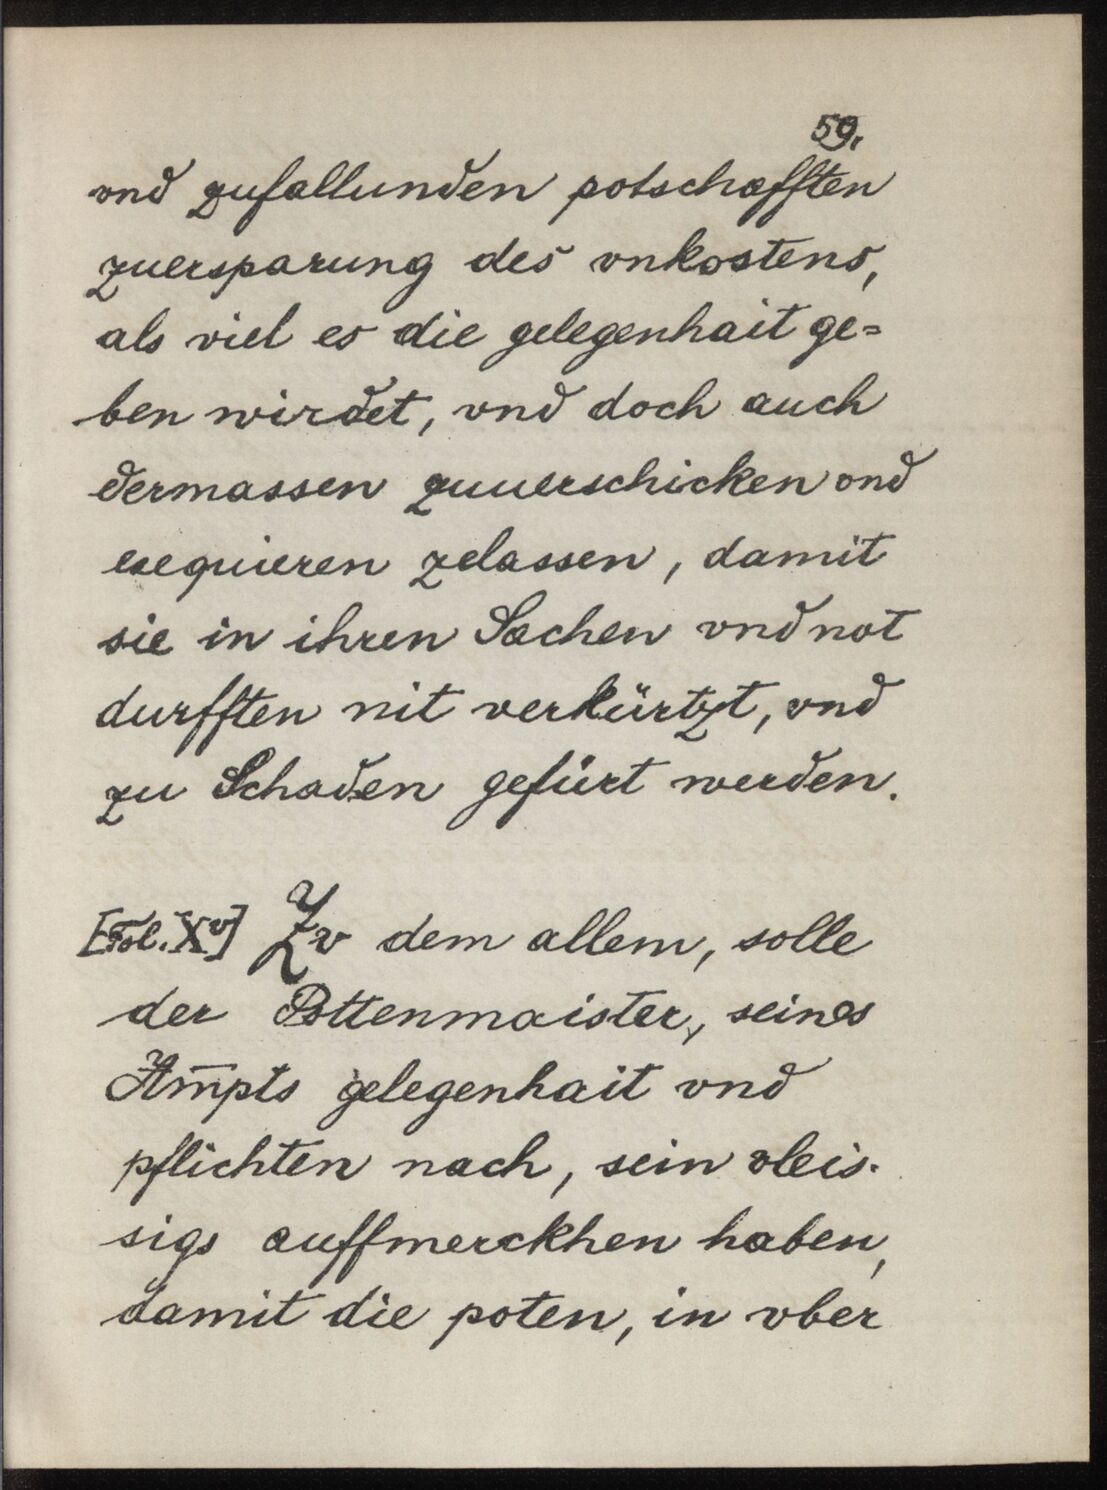 59.
vnd zufallunden potschafften
zuersparung des vnkostens,
als viel es die gelegenhait ge=
ben wirdet, vnd doch auch
dermassen zuuerschicken vnd
exequieren zelassen, damit
sie in ihren Sachen vnd not
durfften nit verkürtzt, vnd
zu Schaden gefürt werden.
[Fol. Xv] Zv dem allem, solle
der Pottenmaister, seines
Am̅pts gelegenhait vnd
pflichten nach, sein vleis-
sigs auffmerckhen haben,
damit die poten, in vber